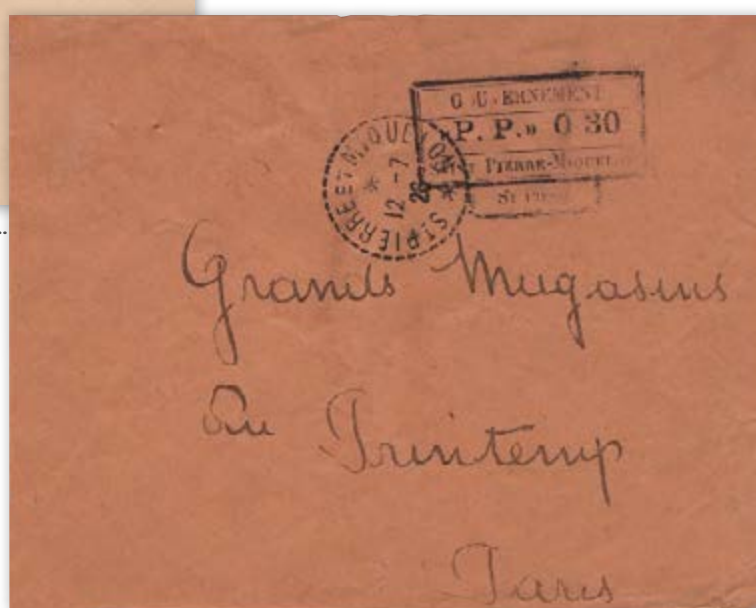 GOUVERNEMENT
«P. P.» 0 30
PIERRE-MIQUELON
ST PIERRE ET MIQUELON
12 -7
26
Grands Magasins
Du Printemp
Paris